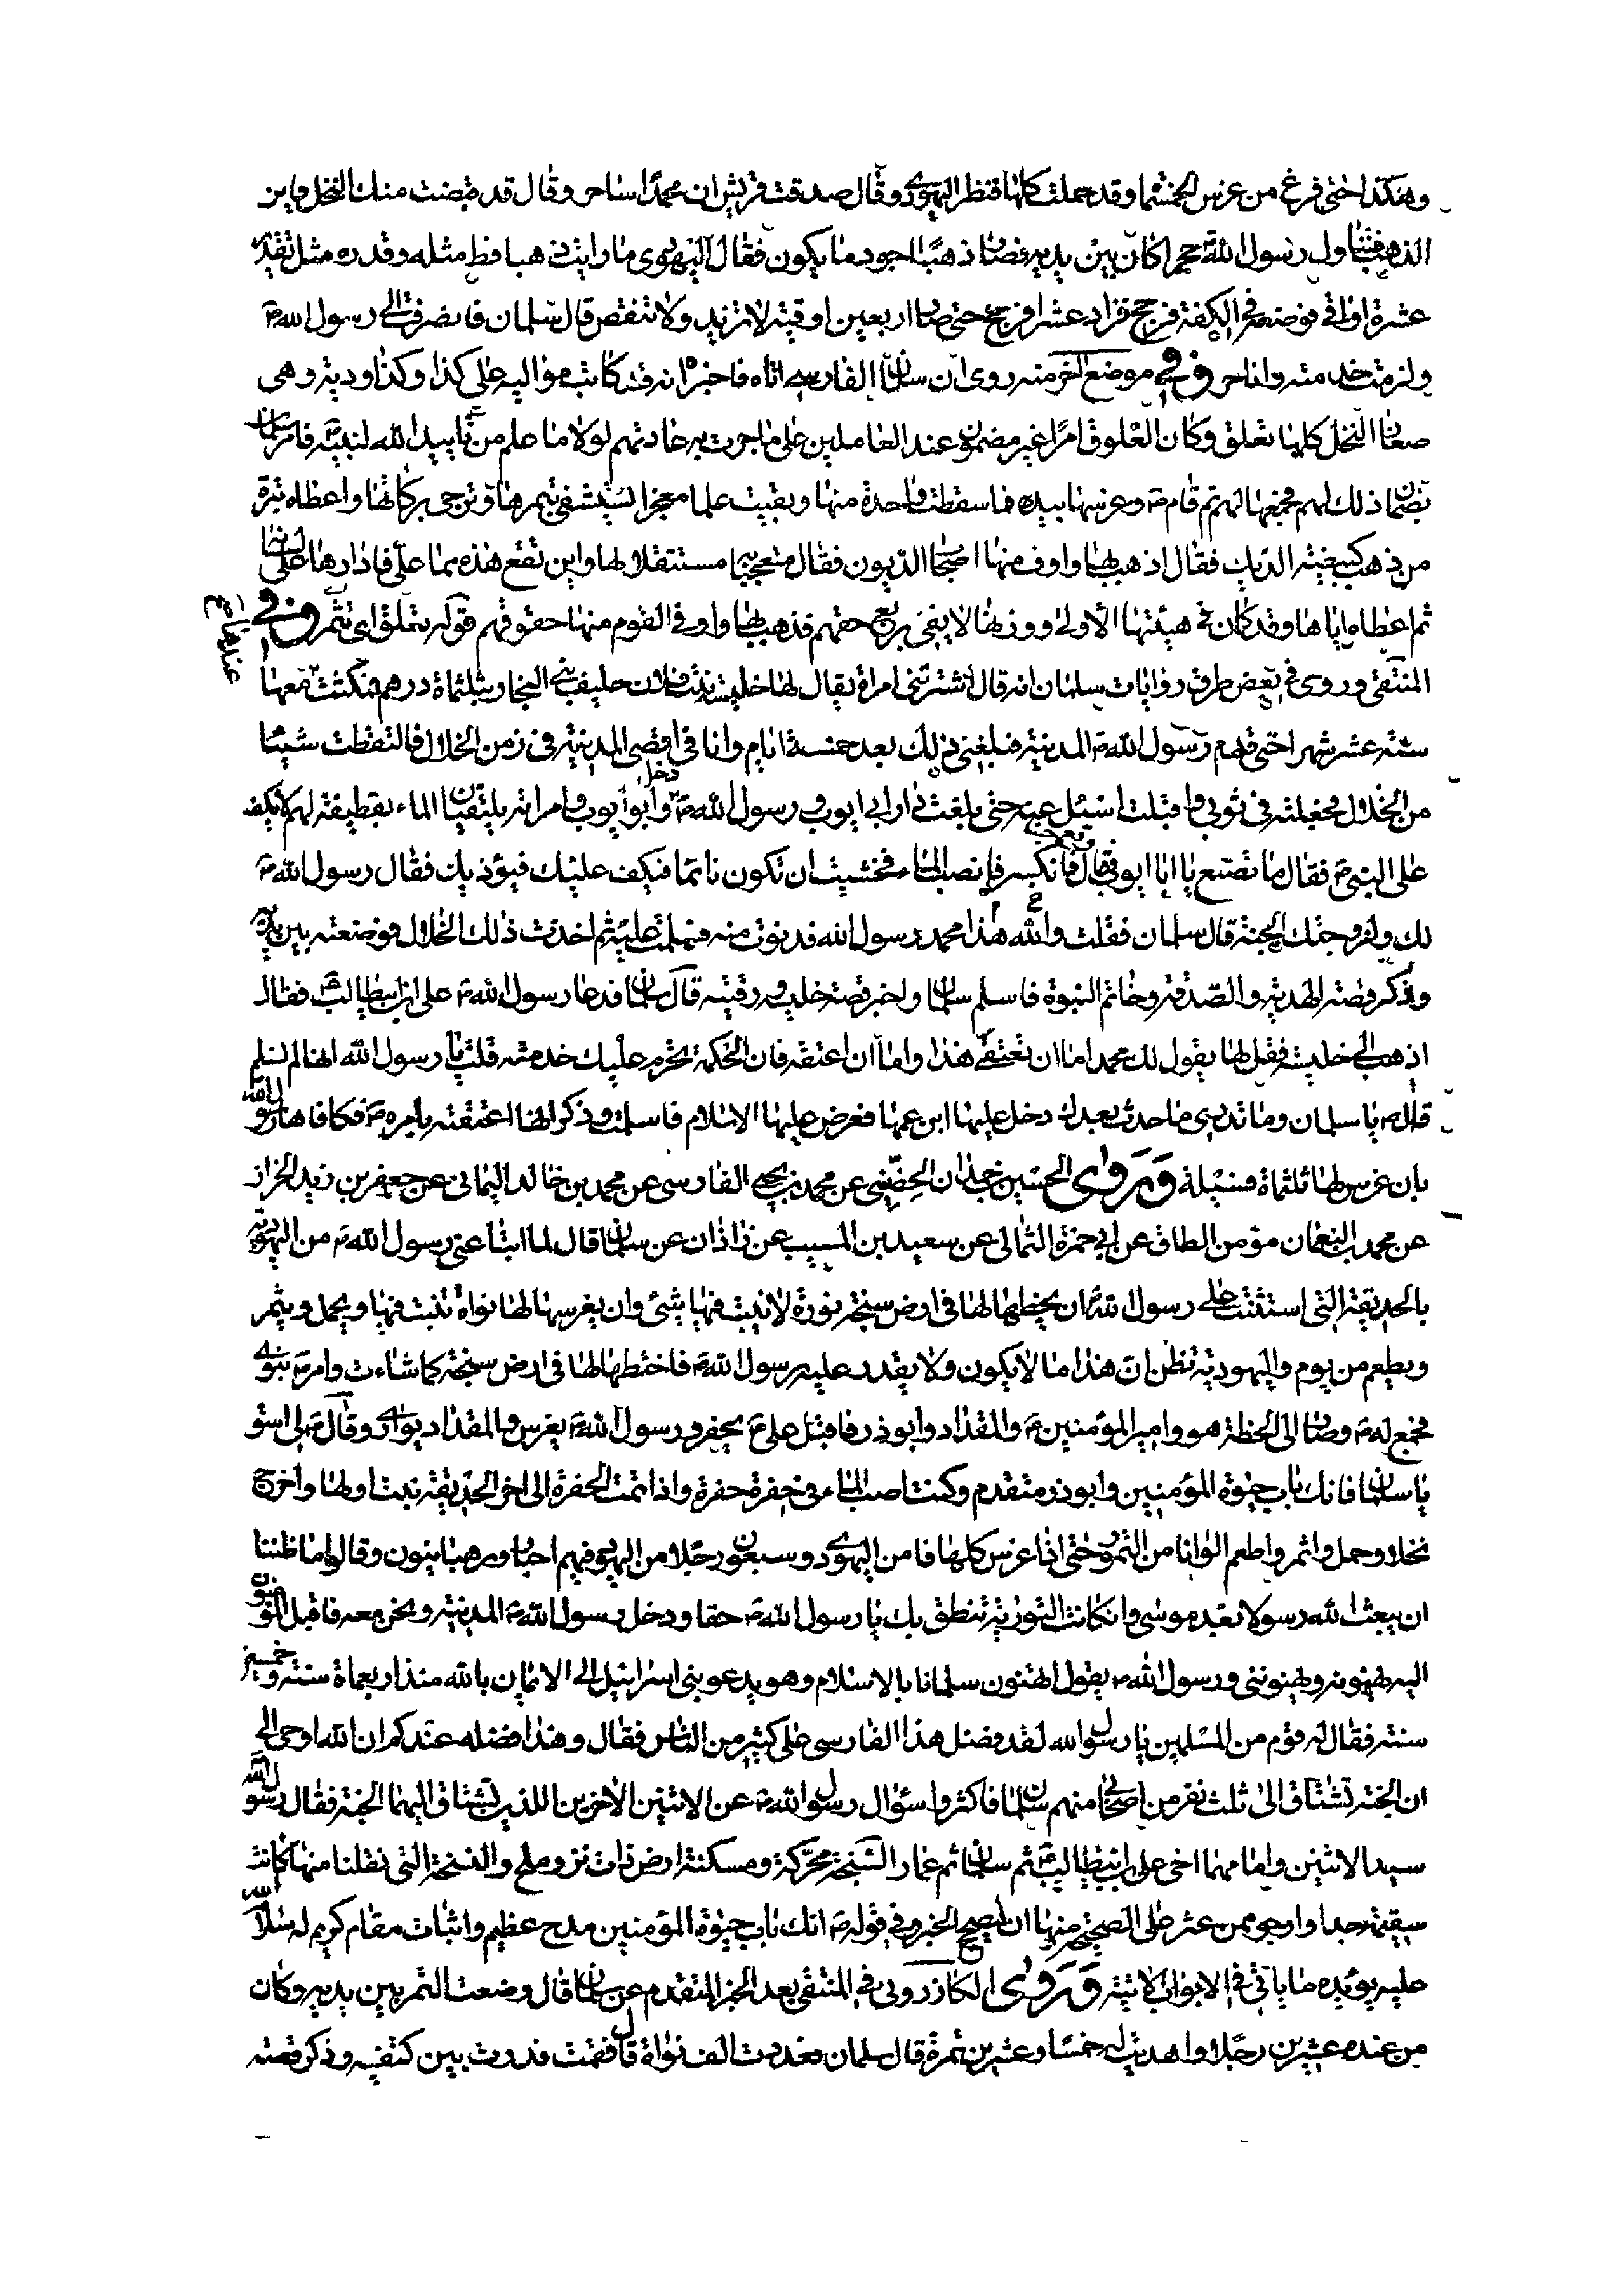 وهكذا حتى فرغ من غرس الخمسمأة وقد حملت كلها فنظر اليهودى وقال صدقت قريش ان محمدا ساحر وقال قد قبضت منك النخل فاين
الذهب فتناول رسول الله ص حجرا كان بين يديه فصار ذهبا اجود ما يكون فقال اليهودى ما رايت ذهبا قط مثله وقدره مثل تقدير
عشرة اواقى فوضعه فى الكفة فرجح فزاد عشرا فرجح حتى صار اربعين اوقية لا تزيد ولا تنقص قال سلمان فانصرفت الى رسول الله ص
ولزمت خدمته وانا حر وفى موضع آخر منه روى ان سلمان الفارسى اتاه فاخبره انه قد كاتب مواليه على كذا وكذا ودية وهى
صغار النخل كلها تعلق وكان العلوق امرا غير مضمون عند العاملين على ما جرت به عادتهم لولا ما علم من تاييد الله لنبيه ص فامر سلمان
بضمان ذلك لهم فجمعها لهم ثم قام ص وغرسها بيده فما سقطت واحدة منها وبقيت علما معجزا يستشفى بتمرها وترجى بركاتها واعطاه تبرة
من ذهب كبيضة الديك فقال اذهب بها واوف منها اصحاب الديون فقال متعجبا مستقلا لها واين تقع هذه مما على فادارها على لسانه
ثم اعطاه اياها وقد كان فى هيئتها الاولى ووزنها لا يفى بربع حقهم فذهب بها واوفى القوم منها حقوقهم قوله تعلق اى تثمر وفى
المنتقى وروى فى بعض طرق روايات سلمان انه قال اشترتنى امراة يقال لها خليسة بنت فلان حليف بنى النجار بثلثمأة درهم فمكثت معها
ستة عشر شهرا حتى قدم رسول الله ص المدينة فبلغنى ذلك بعد خمسة ايام وانا فى اقصى المدينة فى زمن الخلال فالتقطت شيئا
من الخلال فجعلته فى ثوبى واقبلت اسئل عنه حتى بلغت دار ابى ايوب ورسول الله ص وابو ايوب وامراته يلتقيان الماء بقطيفة لهم لا يكف
على النبى ص فقال ما تصنع يا ابا ايوب فقال فانكسر فانصب الماء فخشيت ان تكون نائما فيكف عليك فيؤذيك فقال رسول الله ص
لك ولزوجتك الجنة قال سلمان فقلت والله هذا محمد رسول الله فدنوت منه فسلمت عليه ثم اخذت ذلك الخلال فوضعته بين يديه
وذكر قصة الهدية والصدقة وخاتم النبوة فاسلم سلمان واخبر قصة خليسة ورقيته قال سلمان فدعا رسول الله ص على بن ابيطالب ع فقال
اذهب الى خليسة فقل لها يقول لك محمد اما ان تعتقى هذا واما ان اعتقه فان الحكمة تحرم عليك خدمته قلت يا رسول الله انها لم تسلم
قال ص يا سلمان وما تدرى ما حدث بعدك دخل عليها ابن عمها فعرض عليها الاسلام فاسلمت وذكر انها اعتقته بامره ص فكافاها رسول الله
بان غرس لها ثلثمأة فسيلة وروى الحسين بن حمدان الحضينى عن محمد بن يحيى الفارسى عن محمد بن خالد اليمانى عن جعفر بن زيد الخزاز
عن محمد بن النعمان مؤمن الطاق عن ابى حمزة الثمالى عن سعيد بن المسيب عن زاذان عن سلمان قال لما ابتاعنى رسول الله ص من اليهودية
بالحديقة التى استثنت على رسول الله ص ان يخطها لها فى ارض سبخة بورة لا ينبت فيها شئ وان يغرسها لها نواة تنبت فيها ويحمل ويثمر
ويطعم من يوم واليهودية تظن ان هذا ما لا يكون ولا يقدر عليه رسول الله ص فاختطها لها فى ارض سبخة كما شاءت وامر ص بنوى
فجمع له ص وصار الى الخطة هو وامير المؤمنين ع والمقداد وابو ذر فاقبل على ع يحفر ورسول الله ص يغرس والمقداد يوارى وقال ص لى اسق
يا سلمان فانك باب حيوة المؤمنين وابو ذر متقدم وكنت اصب الماء فى حفرة حفرة واذا تمت الحفرة الى اخر الحديقة نبت اولها واخرج
نخلا وحمل واثمر واطعم الوانا من التمور حتى اذا غرس كلها فامن اليهود وسبعون رجلا من اليهود فيهم احبار ورهبانيون وقالوا ما ظننا
ان يبعث الله رسولا بعد موسى وان كانت التورية تنطق بك يا رسول الله ص حقا ودخل رسول الله ص المدينة ونحن معه فاقبل المؤمنون
اليه يهنونه ويهنوننى ورسول الله ص يقول اتهنون سلمانا بالاسلام وهو يدعو بنى اسرائيل الى الايمان بالله منذ اربعمأة سنة وخمسين
سنة فقال له قوم من المسلمين يا رسول الله لقد فضل هذا الفارسى على كثير من الناس فقال وهذا فضله عندكم ان الله اوحى الى
ان الجنة تشتاق الى ثلث نفر من اصحابى منهم سلمان فاكثروا سؤال رسول الله ص عن الاثنين الاخرين اللذين تشتاق اليهما الجنة فقال رسول الله
سيد الاثنين وامامهما اخى على بن ابيطالب ع ثم سلمان ثم عمار السبخة محركة ومسكنة ارض ذات نز وملح والنسخة التى نقلنا منها كانت
سقيمة جدا وارجو ممن عثر على الصحيح منها ان يصحح الخبر وفى قوله ص انك باب حيوة المؤمنين مدح عظيم واثبات مقام كريم له سلام الله
عليه يؤيده ما ياتى فى الابواب الاتية وروى الكازرونى فى المنتقى بعد الخبر المتقدم عن سلمان قال وضعت التمر بين يديه وكان
من عنده عشرين رجلا واهديت له خمسا وعشرين تمرة قال سلمان فعددت الف نواة قال فقمت فدرت بين كتفيه وذكر قصة